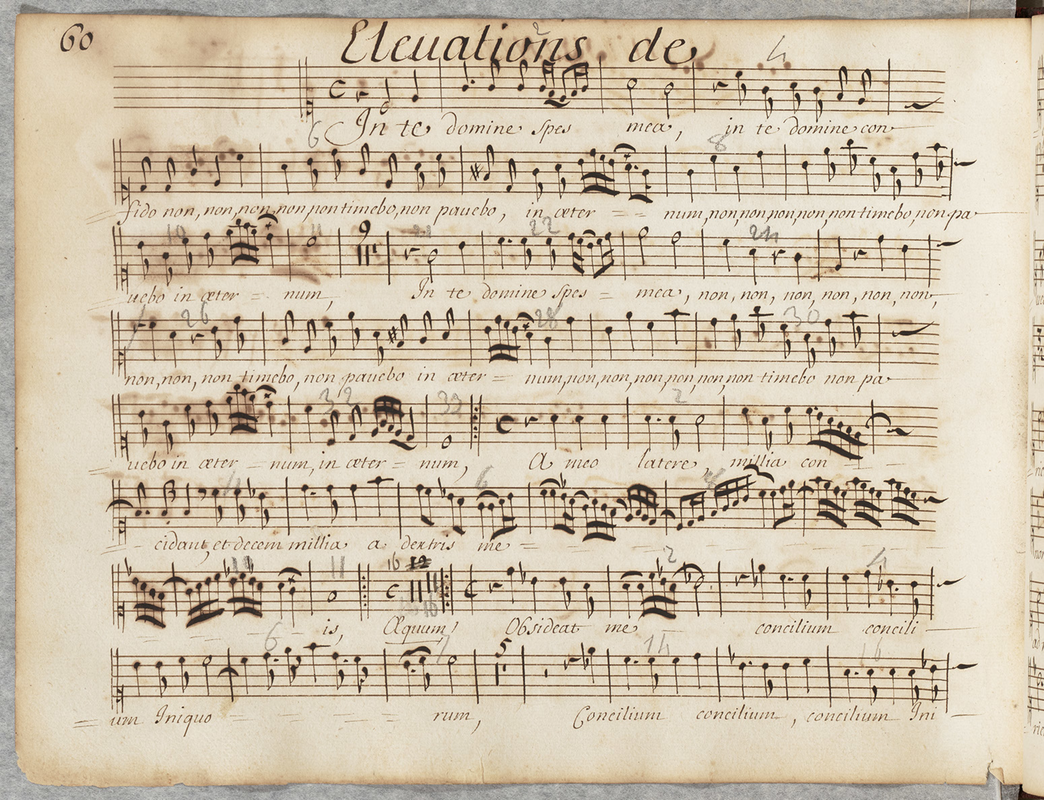 60
Eleuations de
4
In te domine spes mea, in te domine con
6
8
fido non, non, non, non, non timebo, non pauebo, in æter = = num, non, non, non, non, non timebo, non pa
10 11 9 21 22 24
uebo in æter = num, In te domine spes = mea, non, non, non, non, non, non,
26 28 30
non, non, non timebo, non pauebo in æter = num, non, non, non, non, non, non timebo non pa
32 33 2
uebo in æter = num, in æter = num, A meo latere millia con
6
cidant, et decem millia a dextris me = = =
11 16 12 2 4
is, Æquum Obsideat me concilium concili
6 7 5 14 16
um Iniquo = = = = rum, Concilium concilium, concilium Ini